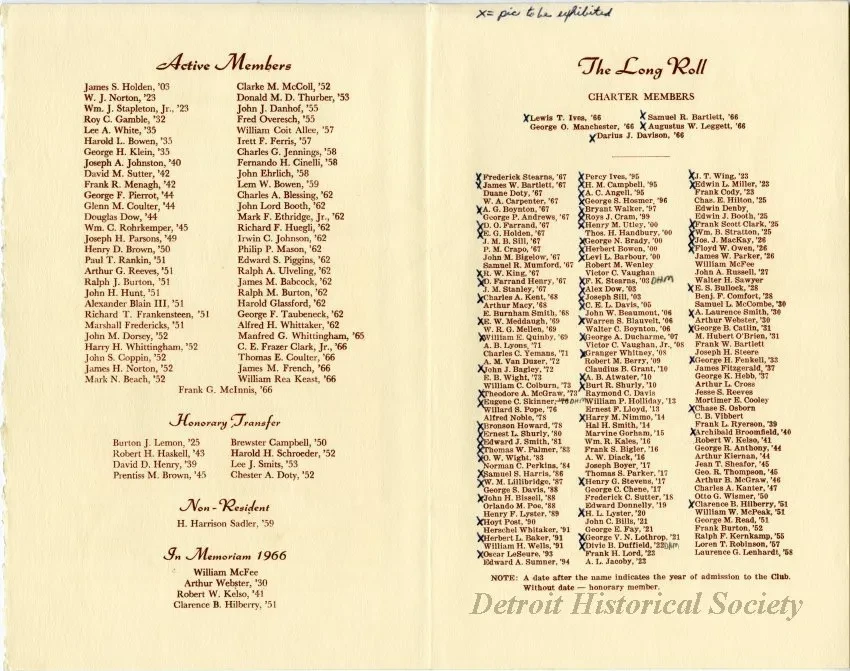 Active Members
James S. Holden, '03
W. J. Norton, '23
Wm. J. Stapleton, Jr., '23
Roy C. Gamble, '32
Lee A. White, '35
Harold L. Bowen, '35
George H. Klein, '35
Joseph A. Johnston, '40
David M. Sutter, '42
Frank R. Menagh, '42
George F. Pierrot, '44
Glenn M. Coulter, '44
Douglas Dow, '44
Wm. C. Rohrkemper, '45
Joseph H. Parsons, '49
Henry D. Brown, '50
Paul T. Rankin, '51
Arthur G. Reeves, '51
Ralph J. Burton, '51
John H. Hunt, '51
Alexander Blain III, '51
Richard T. Frankensteen, '51
Marshall Fredericks, '51
John M. Dorsey, '52
Harry H. Whittingham, '52
John S. Coppin, '52
James H. Norton, '52
Mark N. Beach, '52
Clarke M. McColl, '52
Donald M. D. Thurber, '53
John J. Danhof, '55
Fred Overesch, '55
William Coit Allee, '57
Irett F. Ferris, '57
Charles G. Jennings, '58
Fernando H. Cinelli, '58
John Ehrlich, '58
Lem W. Bowen, '59
Charles A. Blessing, '62
John Lord Booth, '62
Mark F. Ethridge, Jr., '62
Richard F. Huegli, '62
Irwin C. Johnson, '62
Philip P. Mason, '62
Edward S. Piggins, '62
Ralph A. Ulveling, '62
James M. Babcock, '62
Ralph M. Burton, '62
Harold Glassford, '62
George F. Taubeneck, '62
Alfred H. Whittaker, '62
Manfred G. Whittingham, '65
C. E. Frazer Clark, Jr., '66
Thomas E. Coulter, '66
James M. French, '66
William Rea Keast, '66
Frank G. McInnis, '66
Honorary Transfer
Burton J. Lemon, '25
Robert H. Haskell, '43
David D. Henry, '39
Prentiss M. Brown, '45
Brewster Campbell, '50
Harold H. Schroeder, '52
Lee J. Smits, '53
Chester A. Doty, '52
Non-Resident
H. Harrison Sadler, '59
In Memoriam 1966
William McFee
Arthur Webster, '30
Robert W. Kelso, '41
Clarence B. Hilberry, '51
X= pic to be exhibited
The Long Roll
CHARTER MEMBERS
X Lewis T. Ives, '66
X Samuel R. Bartlett, '66
George O. Manchester, '66
X Augustus W. Leggett, '66
X Darius J. Davison, '66
X Frederick Stearns, '67
X James W. Bartlett, '67
Duane Doty, '67
W. A. Carpenter, '67
X A. G. Boynton, '67
George P. Andrews, '67
X D. O. Farrand, '67
X E. G. Holden, '67
J. M. B. Sill, '67
P. M. Crapo, '67
John M. Bigelow, '67
Samuel R. Mumford, '67
X R. W. King, '67
X D. Farrand Henry, '67
J. M. Stanley, '67
X Charles A. Kent, '68
X Arthur Macy, '68
E. Burnham Smith, '68
X E. W. Meddaugh, '69
W. R. G. Mellen, '69
X William E. Quinby, '69
A. B. Lyons, '71
Charles C. Yemans, '71
A. M. Van Duzer, '72
X John J. Bagley, '72
E. B. Wight, '73
William C. Colburn, '73
X Theodore A. McGraw, '73
X Eugene C. Skinner, '76 DHM
Willard S. Pope, '76
Alfred Noble, '78
X Bronson Howard, '78
X Ernest L. Shurly, '80
X Edward J. Smith, '81
X Thomas W. Palmer, '83
X O. W. Wight, '83
Norman C. Perkins, '84
X Samuel S. Harris, '86
X W. M. Lillibridge, '87
George S. Davis, '88
X John H. Bissell, '88
Orlando M. Poe, '88
Henry F. Lyster, '89
X Hoyt Post, '90
Herschel Whitaker, '91
X Herbert L. Baker, '91
William H. Wells, '91
X Oscar LeSeure, '93
Edward A. Sumner, '94
X Percy Ives, '95
X H. M. Campbell, '95
X A. C. Angell, '95
X George S. Hosmer, '96
X Bryant Walker, '97
X Roys J. Cram, '99
X Henry M. Utley, '00
Thos. H. Handbury, '00
X George N. Brady, '00
X Herbert Bowen, '00
X Levi L. Barbour, '00
Robert M. Wenley
Victor C. Vaughan
X F. K. Stearns, '03 DHM
X Alex Dow, '03
X Joseph Sill, '03
X C. E. L. Davis, '05
John W. Beaumont, '06
X Warren S. Blauvelt, '06
Walter C. Boynton, '06
X George A. Ducharme, '07
Victor C. Vaughan, Jr., '08
X Granger Whitney, '08
Robert M. Berry, '09
Claudius B. Grant, '10
X A. B. Atwater, '10
X Burt R. Shurly, '10
Raymond C. Davis
X William P. Holliday, '13
Ernest F. Lloyd, '13
X Harry M. Nimmo, '14
Hal H. Smith, '14
Marvine Gorham, '15
Wm. R. Kales, '16
Frank S. Bigler, '16
A. W. Diack, '16
Joseph Boyer, '17
Thomas S. Parker, '17
X Henry G. Stevens, '17
George C. Chene, '17
Frederick C. Sutter, '18
Edward Donnelly, '19
X H. L. Lyster, '20
John C. Bills, '21
George E. Fay, '21
X George V. N. Lothrop, '21
X Divie B. Duffield, '22 DHM
Frank H. Lord, '23
A. L. Jacoby, '23
X J. T. Wing, '23
X Edwin L. Miller, '23
Frank Cody, '23
Chas. E. Hilton, '25
Edwin Denby
Edwin J. Booth, '25
X Frank Scott Clark, '25
X Wm. B. Stratton, '25
X Jos. J. MacKay, '26
X Floyd W. Owen, '26
James W. Parker, '26
William McFee
John A. Russell, '27
Walter H. Sawyer
X E. S. Bullock, '28
Benj. F. Comfort, '28
Samuel L. McCombe, '30
X A. Laurence Smith, '30
Arthur Webster, '30
X George B. Catlin, '31
M. Hubert O'Brien, '31
Frank W. Bartlett
Joseph H. Steere
X George H. Fenkell, '33
James Fitzgerald, '37
George K. Hebb, '37
Arthur L. Cross
Jesse S. Reeves
Mortimer E. Cooley
X Chase S. Osborn
C. B. Vibbert
Frank L. Ryerson, '39
X Archibald Broomfield, '40
Robert W. Kelso, '41
George R. Anthony, '44
Arthur Kiernan, '44
Jean T. Sheafor, '45
Geo. R. Thompson, '45
Arthur B. McGraw, '46
Charles A. Kanter, '47
Otto G. Wismer, '50
X Clarence B. Hilberry, '51
William W. McPeak, '51
George M. Read, '51
Frank Burton, '52
Ralph F. Kernkamp, '55
Loren T. Robinson, '57
Laurence G. Lenhardt, '58
NOTE: A date after the name indicates the year of admission to the Club.
Without date — honorary member.
Detroit Historical Society